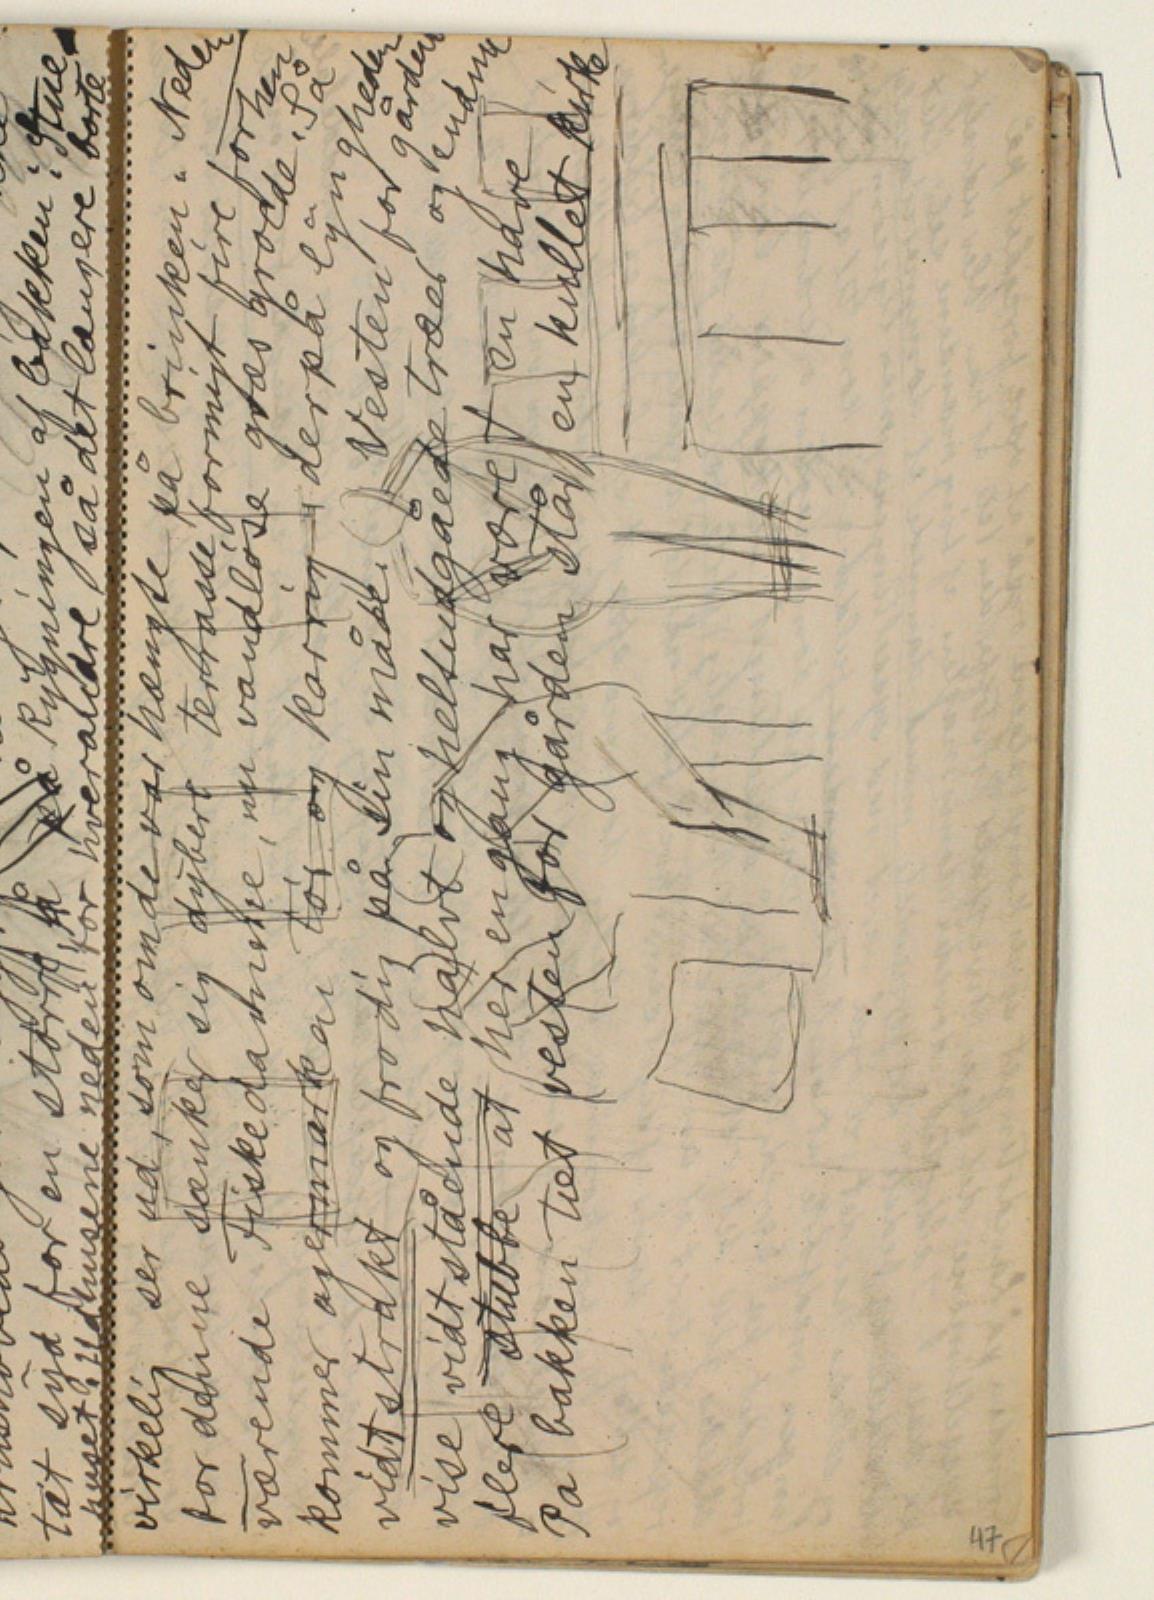 tæt syd for en større å på Rygningen af bakken: Stue
huset. Udhusene neden for hverandre så det længere borte
virkelig ser ud, som om de var hængte på brinken. Neden
for denne sænker sig dybere terrasseformigt fire forhen
værende Fiskedamme, nu vandløse græs groede. Så
kommer agermarken tør og karrig derpå lyngheden
vidtstrakt og frodig på sin måde. Vesten for gården
vise vidtstående halvt og heltudgåede træer og endnu
flere stubbe at her engang har været en have
På bakken tæt vesten for gården står en kullet kirke
47